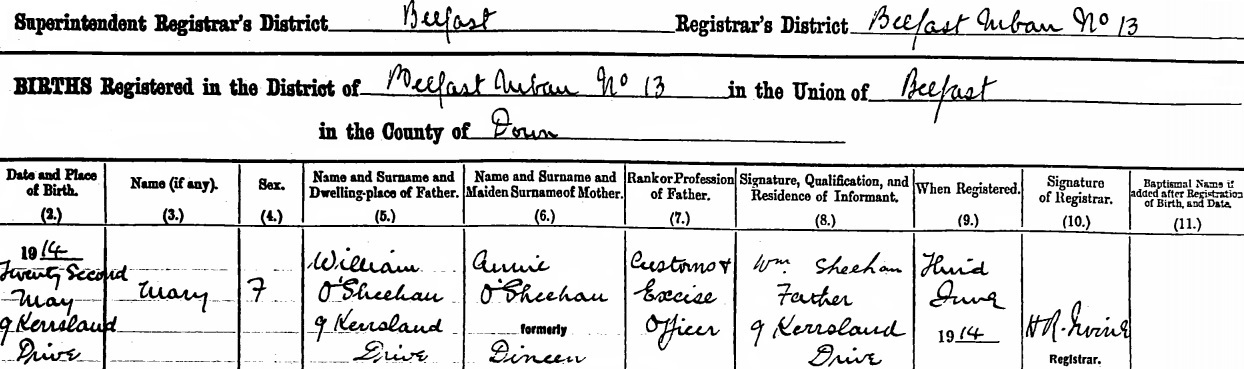 Superintendent Registrar's District Belfast Registrar's District Belfast Urban No 13
BIRTHS Registered in the District of Belfast Urban No 13 in the Union of Belfast
in the County of Down
Date and Place of Birth. (2.)
Name (if any). (3.)
Sex. (4.)
Name and Surname and Dwelling-place of Father. (5.)
Name and Surname and Maiden Surname of Mother. (6.)
Rank or Profession of Father. (7.)
Signature, Qualification, and Residence of Informant. (8.)
When Registered. (9.)
Signature of Registrar. (10.)
Baptismal Name if added after Registration of Birth, and Date. (11.)
1914
Twenty Second
May
9 Kerrsland
Drive
Mary
F
William
O'Sheehan
9 Kerrsland
Drive
Annie
O'Sheehan
formerly
Dineen
Customs &
Excise
Officer
Wm. Sheehan
Father
9 Kerrsland
Drive
Third
June
1914
H R. Irvine
Registrar.